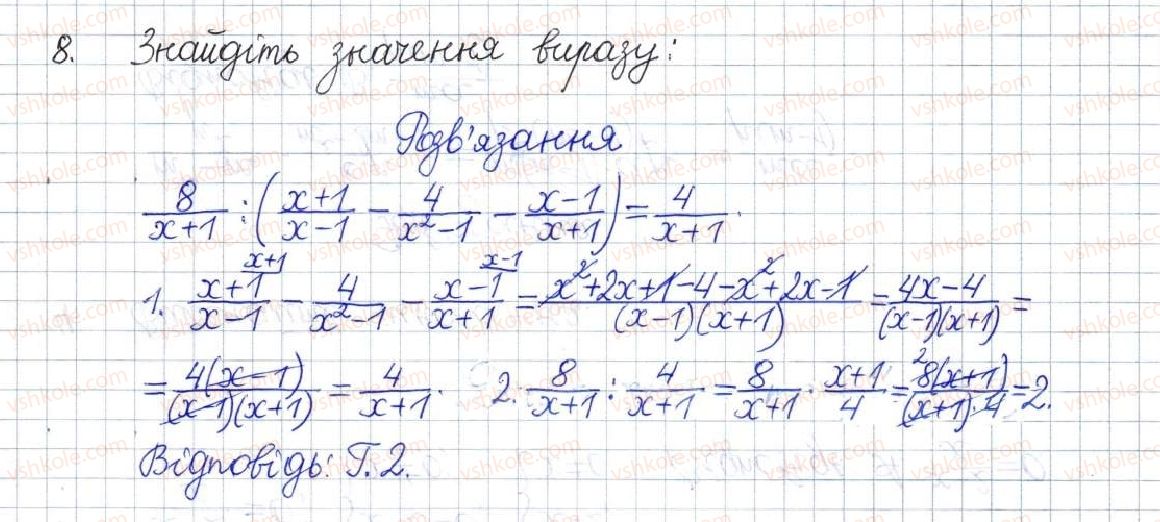 8. Знайдіть значення виразу:
Розв'язання
8/(x+1) : ((x+1)/(x-1) - 4/(x²-1) - (x-1)/(x+1)) = 4/(x+1).
1. (x+1)^(x+1)/(x-1) - 4/(x²-1) - (x-1)^(x-1)/(x+1) = (x²+2x+1-4-x²+2x-1)/((x-1)(x+1)) = (4x-4)/((x-1)(x+1)) =
= 4(x-1)/((x-1)(x+1)) = 4/(x+1). 2. 8/(x+1) : 4/(x+1) = 8/(x+1) · (x+1)/4 = ²8(x+1)/((x+1)·4) = 2.
Відповідь: Г. 2.